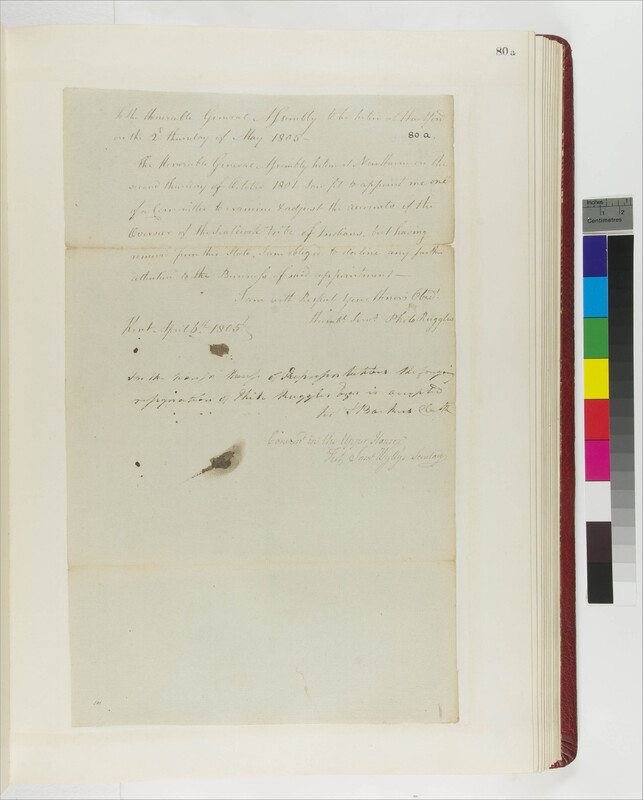 80a
To the Honorable General Assembly to be holen at Hartford
on the 2d thursday of May 1805 -
80a
The Honorable General Assembly holen at Newhaven on the
second thursday of October 1801 saw fit to appoint me one
of a Committee to examine & adjust the accounts of the
Overseer of the Scatacook Tribe of Indians, but having
removed from this State, I am obliged to decline any further
attention to the Business of said appointment —
I am with Respect your Honors Obedt
Humbl Servt Philo Ruggles
Kent April 1805
In the House of Representatives the foregoing
resignation of Philo Ruggles Esqr is accepted
Clerk
Concurd in the Upper House
Test Saml Wyllys Secretary
Inches
1
2
Centimetres